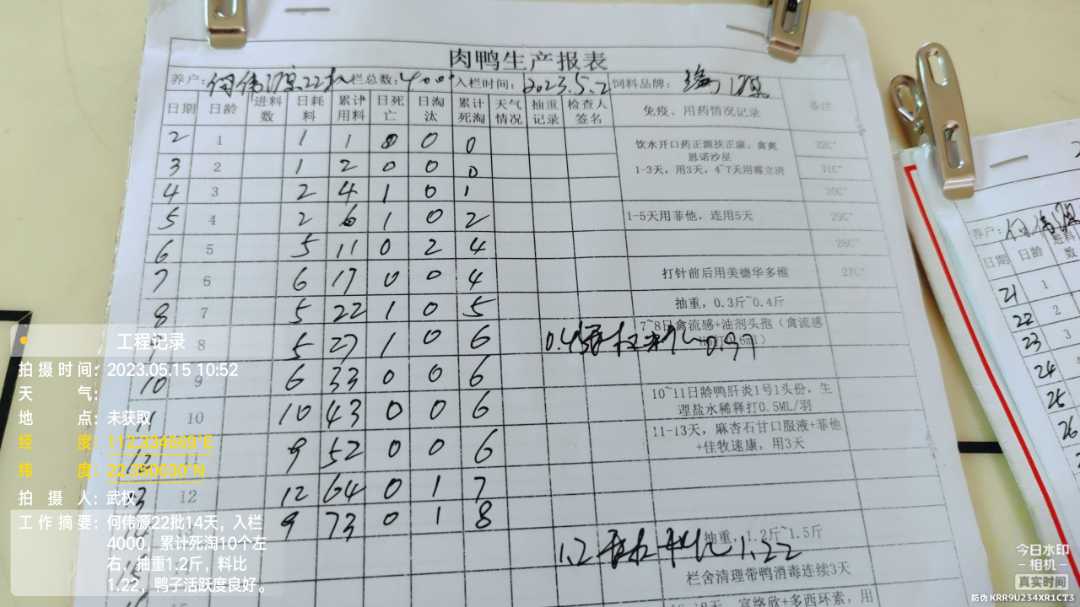 肉鸭生产报表
养户: 何伟源22批 入栏总数: 4000 入栏时间: 2023.5.2 饲料品牌:
日期 日龄 进料数 日耗料 累计用料 日死亡 日淘汰 累计死淘 天气情况 抽重记录 检查人签名 免疫、用药情况记录 备注
2 1 1 1 0 0 0 饮水开口药正源扶正康，禽炎 32C°
恩诺沙星
3 2 1 2 0 0 0 1-3天，用3天，4~7天用霉立清 31C°
4 3 2 4 1 0 1 30C°
5 4 2 6 1 0 2 1-5天用菲他，连用5天 29C°
6 5 5 11 0 2 4 28C°
7 6 6 17 0 0 4 打针前后用美德华多维 27C°
8 7 5 22 1 0 5 抽重，0.3斤~0.4斤
8 5 27 1 0 6 7~8日禽流感+油剂头孢（禽流感
0.97
10 9 6 33 0 0 6
11 10 10 43 0 0 6 10~11日龄鸭肝炎1号1头份，生
理盐水稀释打0.5ML/羽
9 52 0 0 6 11-13天，麻杏石甘口服液+菲他
+佳牧速康，用3天
12 12 64 0 1 7
9 73 0 1 8
抽重，1.2斤~1.5斤
1.2 1.22
栏舍清理带鸭消毒连续3天
养户: 何伟源
日期 日龄 进料数
21 1
22 2
23 3
24
25
26
工程记录
拍摄时间: 2023.05.15 10:52
天气:
地点: 未获取
经度:
纬度:
拍摄人: 武权
工作摘要: 何伟源22批14天，入栏
4000，累计死淘10个左
右，抽重1.2斤，料比
1.22，鸭子活跃度良好。
今日水印
-相机-
真实时间
防伪 KRR9U234XR1CT3